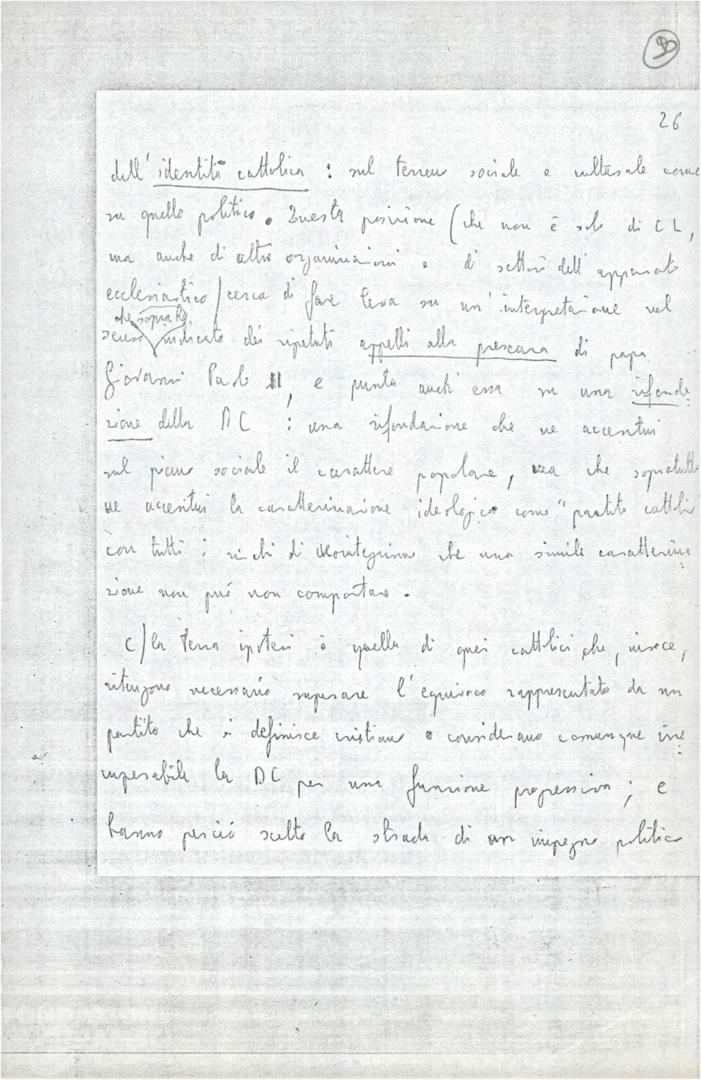 90
26
dell'identità cattolica : sul terreno sociale e culturale come
su quello politico. Questa posizione (che non è solo di CL,
ma anche di altre organizzazioni e di settori dell'apparato
ecclesiastico/cerca di fare leva su un'interpretazione nel
che sopra ho
senso indicato dei ripetuti appelli alla presenza di papa
Giovanni Paolo II, e punta anch'essa su una rifonda
zione della DC : una rifondazione che ne accentui
sul piano sociale il carattere popolare, ma che sopratutto
ne accentui la caratterizzazione ideologica come "partito cattolico
con tutti i rischi di integrismo che una simile caratterizza
zione non può non comportare.
c/la terza ipotesi è quella di quei cattolici che, invece,
ritengono necessario superare l'equivoco rappresentato da un
partito che si definisce cristiano e considerano comunque irre
cuperabile la DC per una funzione progressiva; e
hanno perciò scelto la strada di un impegno politico